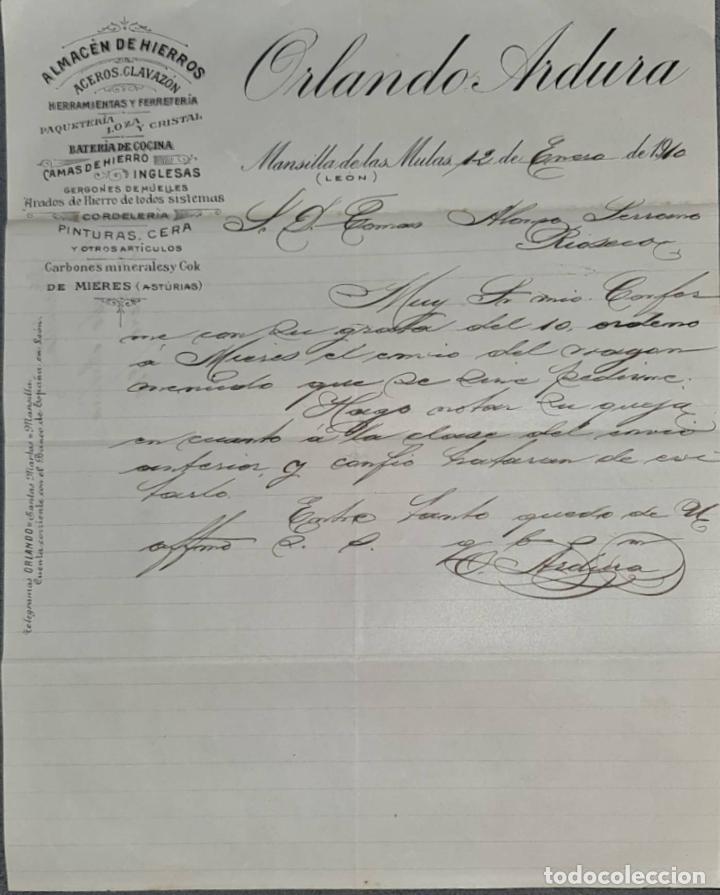 ALMACÉN DE HIERROS
ACEROS, CLAVAZÓN
HERRAMIENTAS Y FERRETERÍA
PAQUETERÍA LOZA Y CRISTAL
BATERÍA DE COCINA
CAMAS DE HIERRO
INGLESAS
GERGONES DE MUELLES
Arados de Hierro de todos sistemas
CORDELERÍA
PINTURAS, CERA
Y OTROS ARTÍCULOS
Carbones minerales y Cok
DE MIERES (ASTÚRIAS)
Telegramas ORLANDO=Santas Martas=Mansilla
Cuenta corriente con el Banco de España, en León.
Orlando Ardura
Mansilla de las Mulas, 12 de Enero de 1910
(LEÓN)
S. D. Tomas Alonso Serrano
Rioseco
Muy Sr mio. Confor
me con su grata del 10. ordeno
á Mieres el envio del vagon
menudo que se sirve pedirme.
Hago notar su queja
en cuanto á la clase del envio
anterior, y confio trataran de evi
tarlo.
Entre tanto quedo de U
affmo s. s. q b s m
O. Ardura
todocoleccion
todocoleccion.net